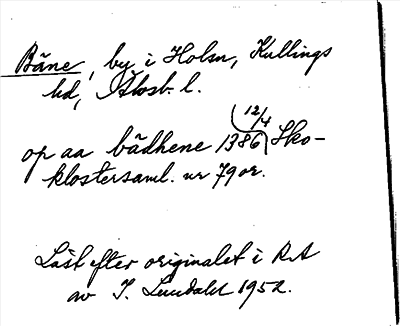 Bäne, by i Holsn, Kullings
hd, Älvsb. l.
12/4
op aa bädhene 1386 Sko-
klostersaml. nr 79 or.
Läst efter originalet i RA
av I. Lundahl 1952.